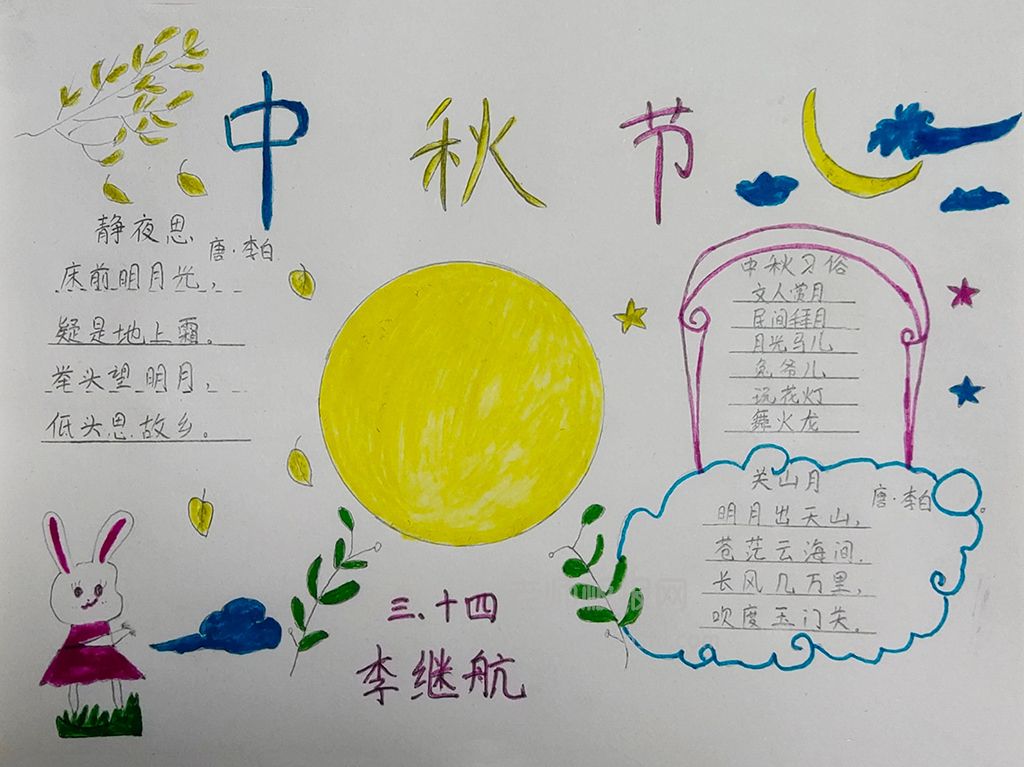 中秋节
静夜思
唐·李白
床前明月光，
疑是地上霜。
举头望明月，
低头思故乡。
中秋习俗
文人赏月
民间拜月
月光马儿
兔爷儿
玩花灯
舞火龙
关山月
唐·李白
明月出天山，
苍茫云海间.
长风几万里，
吹度玉门关。
三.十四
李继航